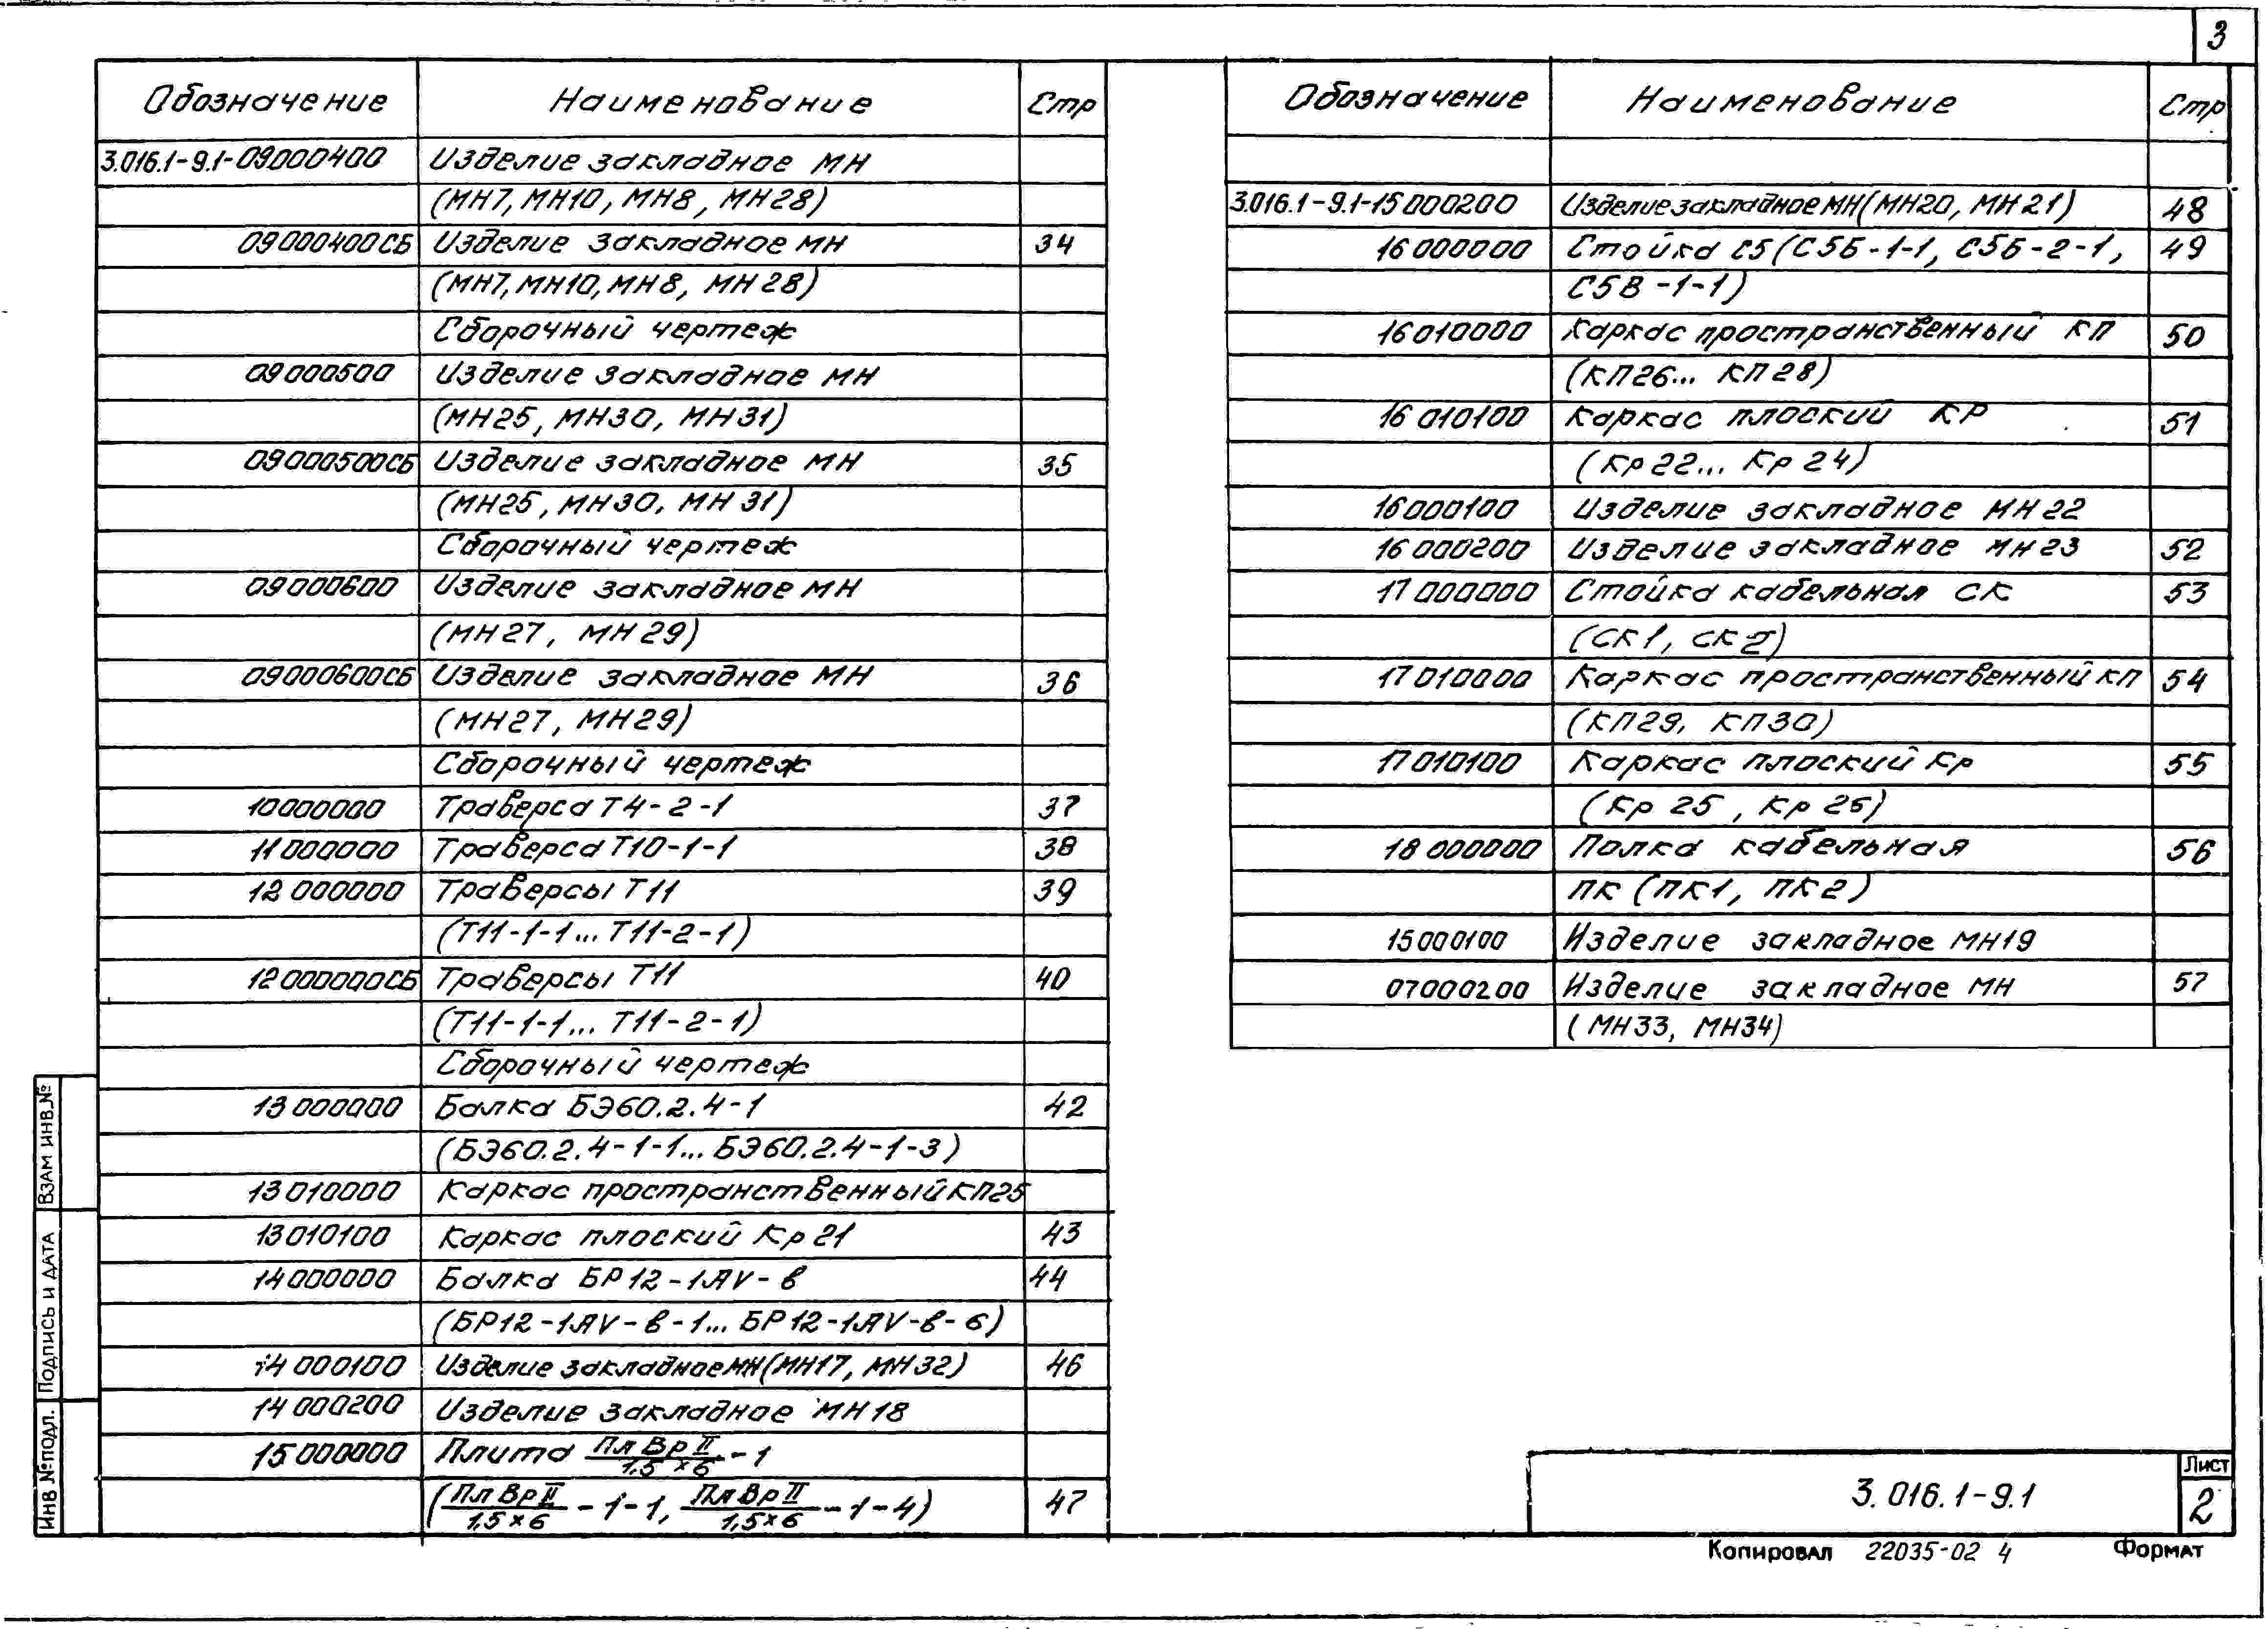 3
Обозначение Наименование Стр
3.016.1-9.1-09000400 Изделие закладное МН
(МН7, МН10, МН8, МН28)
09000400СБ Изделие закладное МН 34
(МН7, МН10, МН8, МН28)
Сборочный чертеж
09000500 Изделие закладное МН
(МН25, МН30, МН31)
09000500СБ Изделие закладное МН 35
(МН25, МН30, МН31)
Сборочный чертеж
09000600 Изделие закладное МН
(МН27, МН29)
09000600СБ Изделие закладное МН 36
(МН27, МН29)
Сборочный чертеж
10000000 Траверса Т4-2-1 37
11000000 Траверса Т10-1-1 38
12000000 Траверсы Т11 39
(Т11-1-1... Т11-2-1)
12000000СБ Траверсы Т11 40
(Т11-1-1... Т11-2-1)
Сборочный чертеж
13000000 Балка БЭ60.2.4-1 42
(БЭ60.2.4-1-1... БЭ60.2.4-1-3)
13010000 Каркас пространственный КП25
13010100 Каркас плоский Кр21 43
14000000 Балка БР12-1АV-в 44
(БР12-1АV-в-1... БР12-1АV-в-6)
14000100 Изделие закладное МН (МН17, МН32) 46
14000200 Изделие закладное МН18
15000000 Плита Пл Вр II / 1,5×6 - 1
(Пл Вр II / 1,5×6 - 1-1, Пл Вр II / 1,5×6 - 1-4) 47
Обозначение Наименование Стр
3.016.1-9.1-15000200 Изделие закладное МН (МН20, МН21) 48
16000000 Стойка С5 (С5Б-1-1, С5Б-2-1, 49
С5В-1-1)
16010000 Каркас пространственный КП 50
(КП26... КП28)
16010100 Каркас плоский КР 51
(Кр22... Кр24)
16000100 Изделие закладное МН22
16000200 Изделие закладное МН23 52
17000000 Стойка кабельная СК 53
(СК1, СК2)
17010000 Каркас пространственный КП 54
(КП29, КП30)
17010100 Каркас плоский Кр 55
(Кр 25, Кр 26)
18000000 Полка кабельная 56
ПК (ПК1, ПК2)
15000100 Изделие закладное МН19
07000200 Изделие закладное МН 57
(МН33, МН34)
Взам инв.№
Подпись и дата
Инв № подл.
3.016.1-9.1
Лист
2
Копировал 22035-02 4 Формат